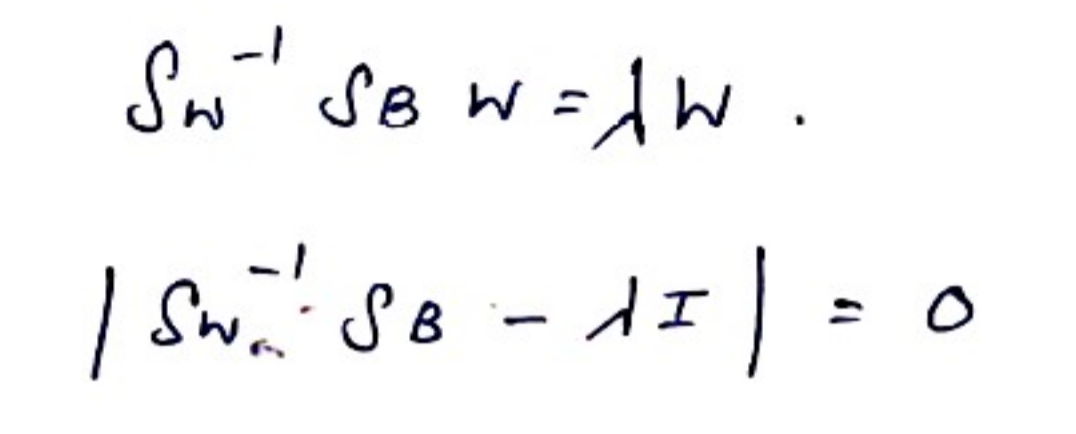 S_W^{-1} S_B W = λW .
| S_W^{-1} S_B - λI | = 0